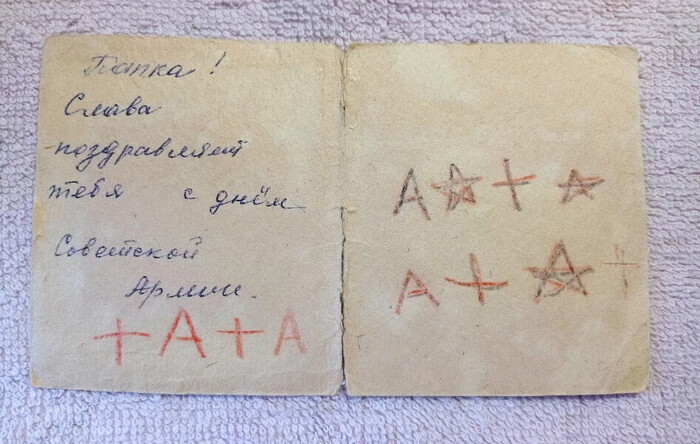 Папка!
Слава
поздравляет
тебя с днём
Советской
Армии.
+А+А
А☆+☆
А+☆+